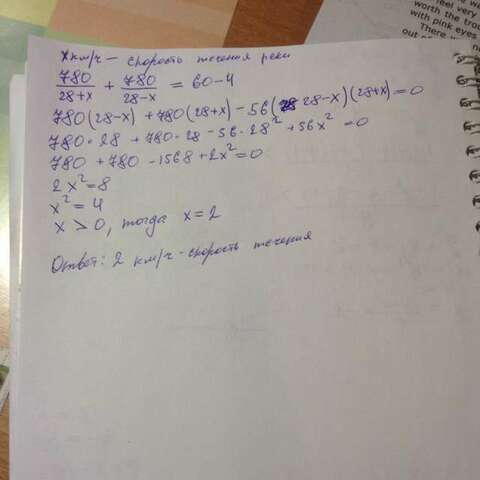 x км/ч – скорость течения реки
780/(28+x) + 780/(28-x) = 60-4
780(28-x) + 780(28+x) - 56(28-x)(28+x)=0
780·28 + 780·28 - 56·28² + 56x² = 0
780 + 780 - 1568 + 2x² = 0
2x²=8
x²=4
x > 0, тогда x=2
Ответ: 2 км/ч - скорость течения
feel very
worth the trou
with pink eyes
There
out